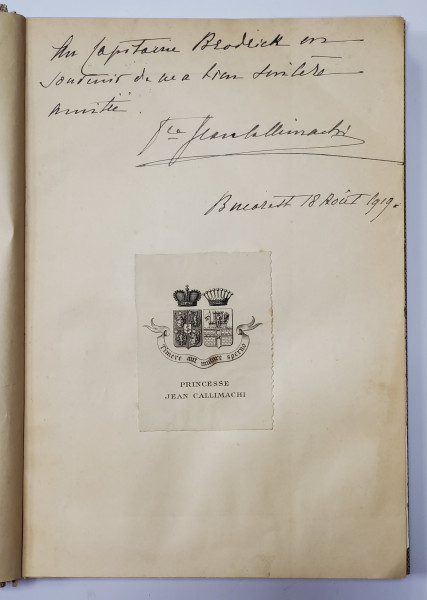 Au Capitaine Brodrick en
souvenir de ma bien sincère
amitié.
Pce Jean Callimachi
Bucarest 18 Août 1919.
timere aut mutare sperno
PRINCESSE
JEAN CALLIMACHI